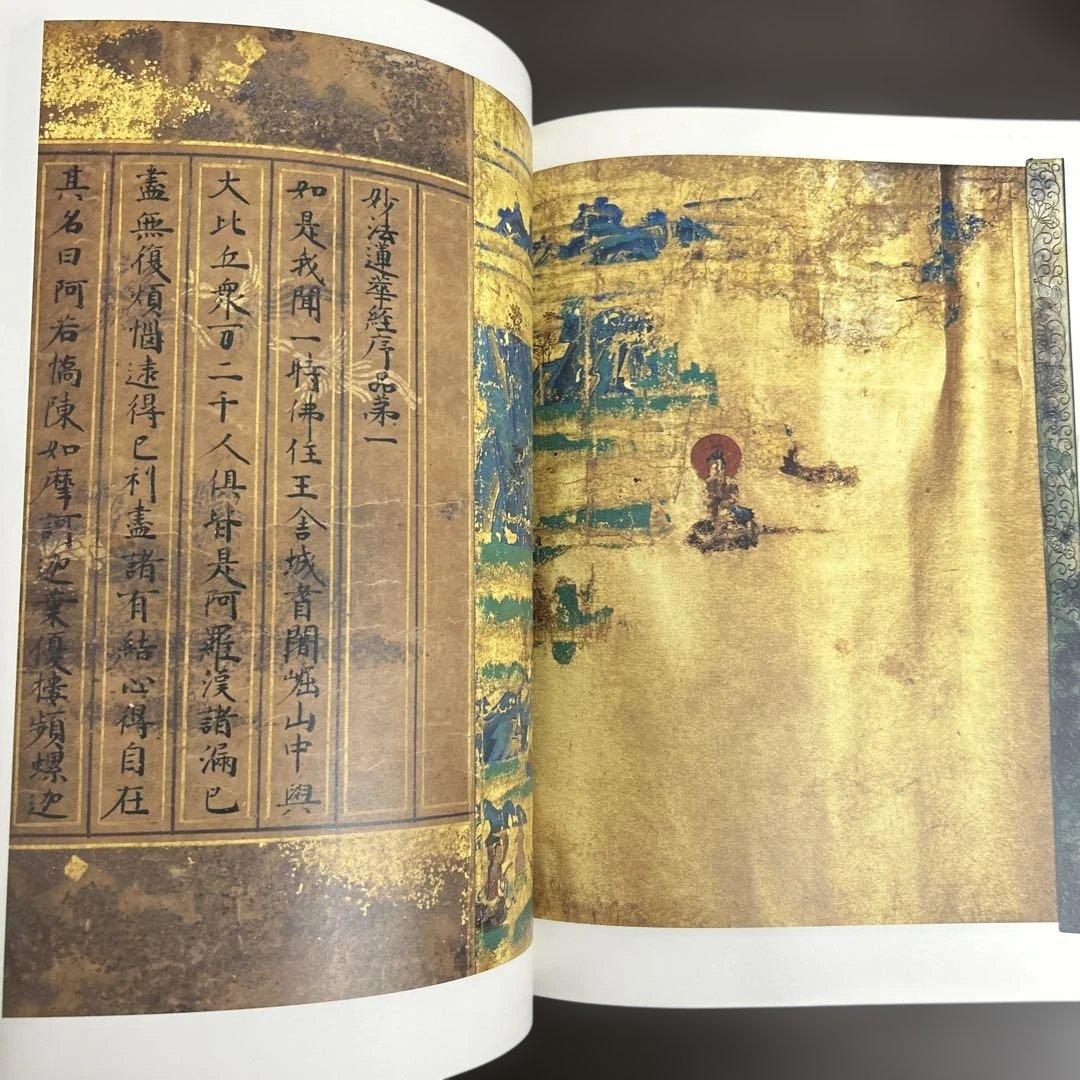 妙法蓮華經序品第一
如是我聞一時佛住王舍城耆闍崛山中與
大比丘衆万二千人俱皆是阿羅漢諸漏已
盡無復煩惱逮得已利盡諸有結心得自在
其名曰阿若憍陳如摩訶迦葉優樓頻螺迦